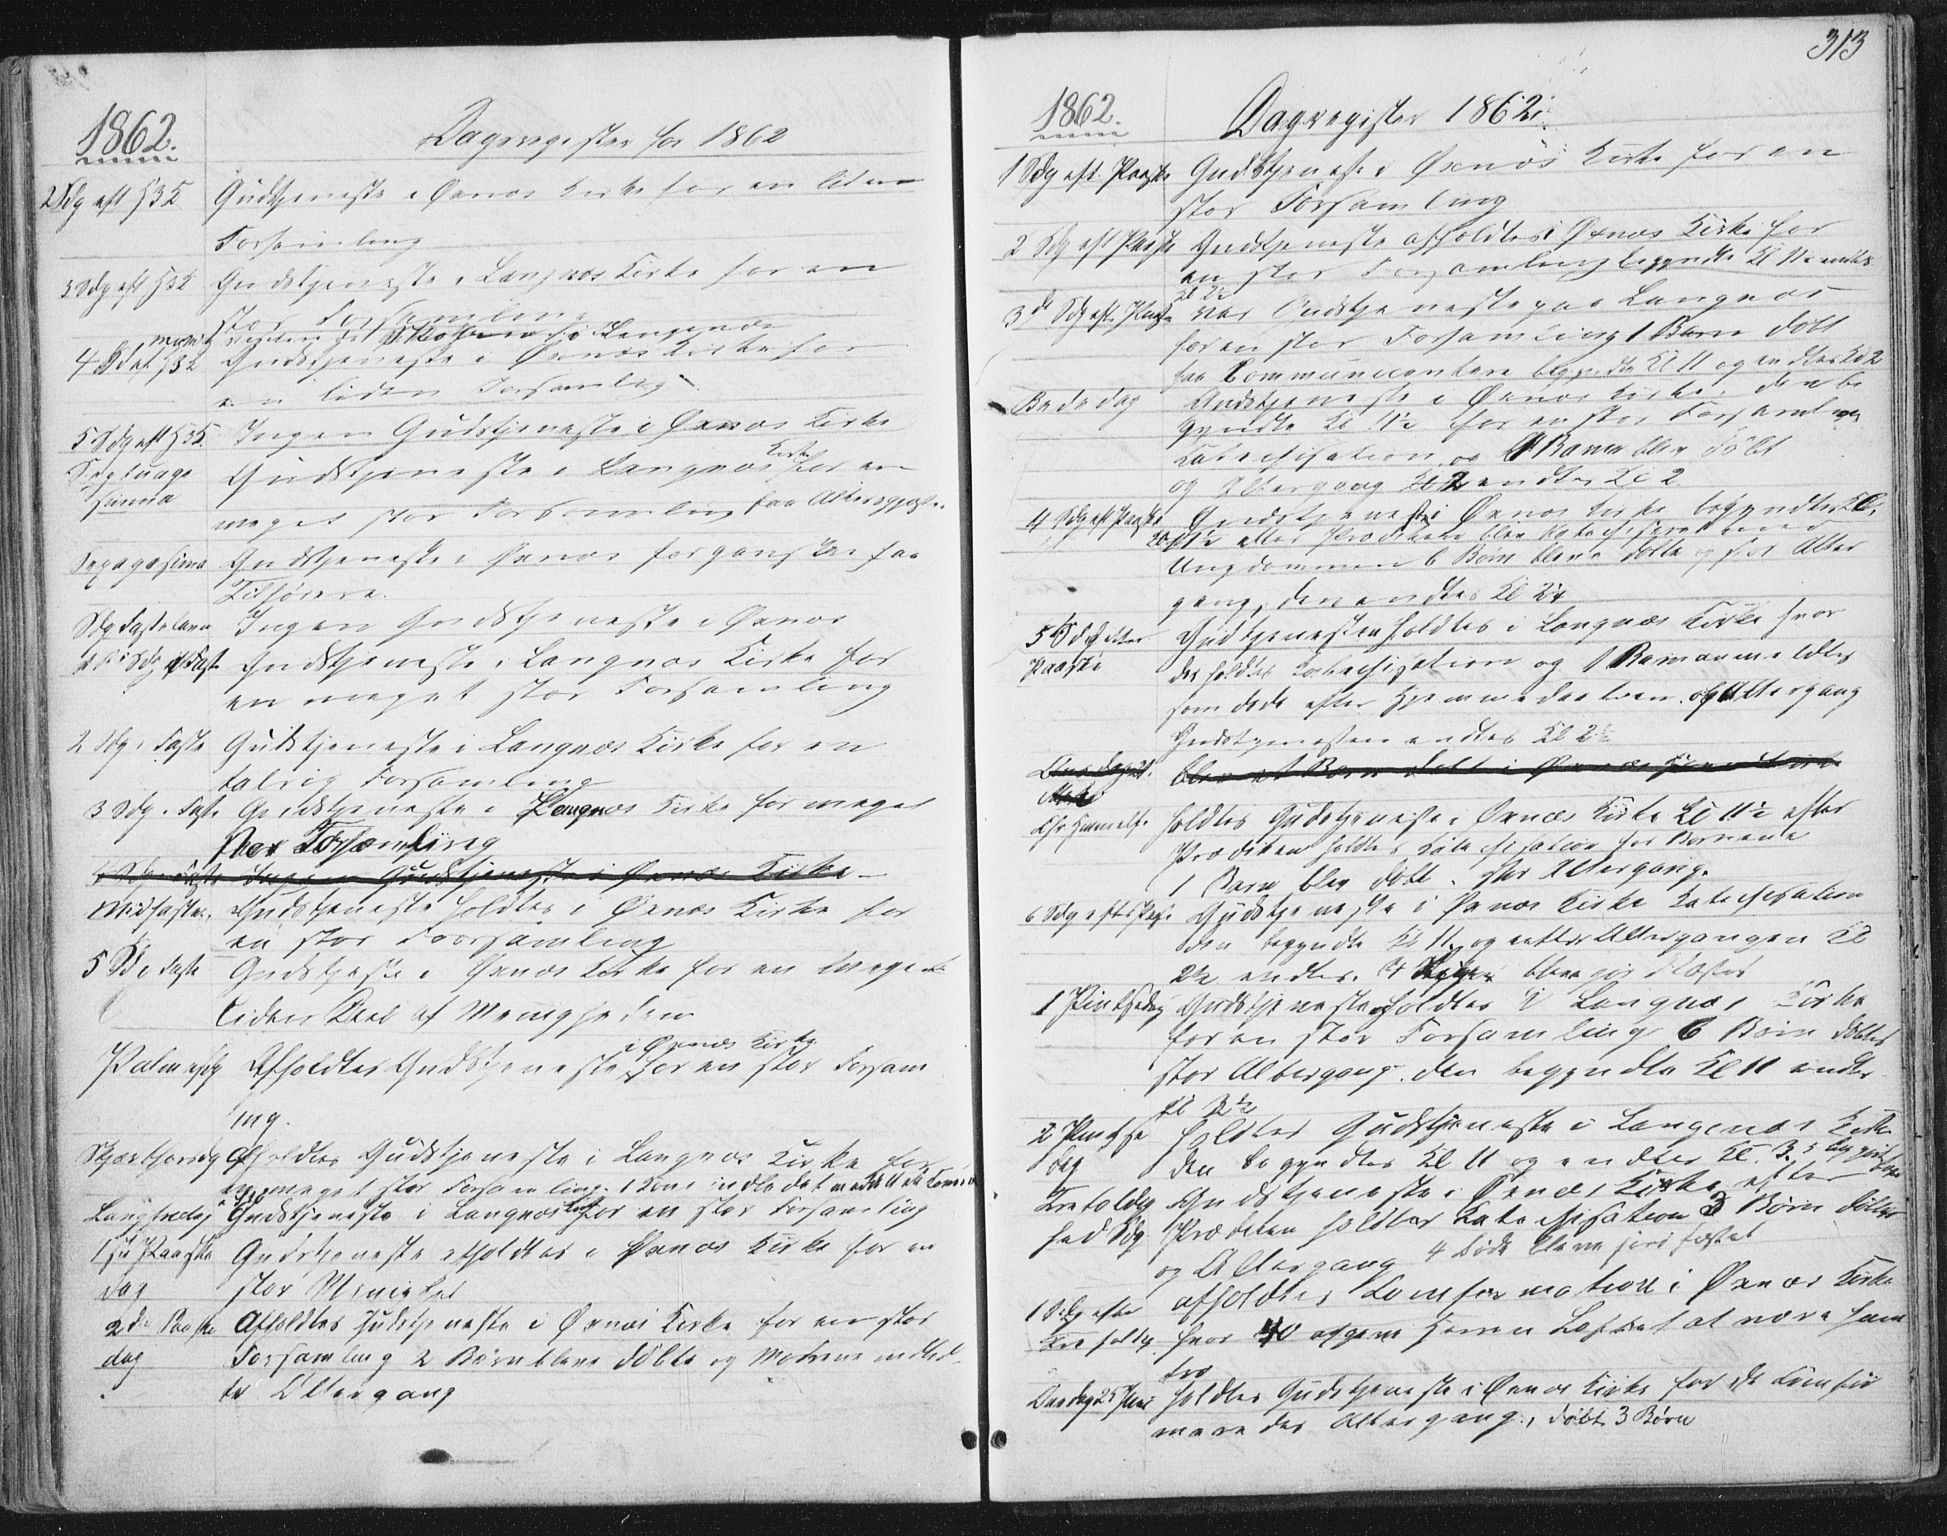 1862.
Dagregister for 1862
2 Sdg eft H3K
Gudstjeneste i Øxnæs Kirke for en liden
Forsamling
3 Sdg eft H3K
Gudstjeneste i Langnæs Kirke for en
stor Forsamling
Gudstjeneste i Øxnæs Kirke for
en liden Forsamling
5 Sdg eft H3K
Ingen Gudstjeneste i Øxnæs Kirke
Septuage
sima
Gudstjeneste i Langnæs Kirke for en
meget stor Forsamling faa Altersgjæst.
Gudstjeneste i Øxnæs for ganske faa
Tilhørere.
Sdg Fastelavn
Ingen Gudstjeneste i Øxnæs
1 Sdg i Faste
Gudstjeneste i Langnæs Kirke for
en meget stor Forsamling
2 Sdg i Faste
Gudstjeneste i Langnæs Kirke for en
talrig Forsamling
3 Sdg i Faste
Gudstjeneste i Langnæs Kirke for meget
stor Forsamling
4 Sdg i Faste Ingen Gudstjeneste i Øxnæs Kirke
Midfaste
Gudstjeneste holdtes i Øxnæs Kirke for
en stor Forsamling
5 S i Faste
Gudstjeste i Øxnæs Kirke for en meget
liden Deel af Menigheden
Palmesdg
Afholdtes Gudstjeneste i Øxnæs Kirke for en stor Forsam
ling.
Skjærthorsdg
Afholdtes Gudstjeneste i Langnæs Kirke for
en meget stor Forsamling. 1 Kone indledet
Langfredag
Gudstjeneste i Langnæs for en stor Forsamling
1ste Paaske
dag
Gudstjeneste afholdtes i Øxnæs Kirke for en
stor Menighed
2den Paaske
dag
Afholdtes Gudstjeneste i Øxnæs Kirke for en stor
Forsamling 2 Børn bleve døbte og Mødrene indled
te Altergang
313
1862.
Dagregister 1862.
1 Sdg eft. Paaske
Gudstjeneste i Øxnæs Kirke for en
stor Forsamling
2 Sdg eft Paaske
Gudstjeneste afholdtes i Øxnæs Kirke for
en stor Forsamling begyndte Kl 11 endtes
Kl 2½
3die Sdg eft. Paaske
var Gudstjeneste paa Langnæs
for en stor Forsamling 1 Barn døbt
faa Communicantere begyndte Kl 11 og endtes Kl 2
Bededag
Gudstjeneste i Øxnæs Kirke, den be
gyndte Kl 11½ for en stor Forsamling
Katechisation og 1 Barn blev døbt
og Altergang endtes Kl 2
4 Sdg eft Paaske
Gudstjeneste i Øxnæs Kirke begyndtes Kl.
11½ efter Prædiken blev katechiseret med
Ungdommen 6 Børn bleve døbte og stor Alter
gang, den endtes Kl 2¼
5 Sdg efter
Paaske
Gudstjenesten holdtes i Langnæs Kirke hvor
der holdtes Katechisation og 1 Barn anmeldtes
som døde efter Hjemmedaaben. og Altergang
Gudstjenesten endtes Kl 2½
blev et Barn døbt i Øxnæs
Chr. Himmelf.
holdtes Gudstjeneste i Øxnæs Kirke Kl 11½ efter
Prædiken holdtes Katechisation for Børnene
1 Barn blev døbt. stor Altergang.
6 Sdg efter Paaske
Gudstjeneste i Øxnæs Kirke Katechisation
den begyndte Kl 11 og efter Altergangen Kl
2½ endtes. 4 bleve jordfæstet
1 Pintsedag
Gudstjenesten holdtes i Langnæs Kirke
for en stor Forsamling 6 Børn døbtes
stor Altergang. den begyndte Kl 11 endtes
Kl 2½
2 Pintse
dag
holdtes Gudstjeneste i Langenæs Kirke
den begyndtes Kl 11 og endtes Kl. 3.
Trefoldig
hed Sdg
Gudstjeneste i Øxnæs Kirke, efter
Prædiken holdtes Katechisation 3 Børn døbtes
og Altergang 4 Døde bleve jordfæstet
1 Sdg efter
Trefoldg.
afholdtes Confirmation i Øxnæs Kirke
hvor 40 afgave Herren Løftet at være ham
tro
Onsdag 25 Juni
holdtes Gudstjeneste i Øxnæs Kirke for de Confir
meredes Altergang, døbt 3 Børn